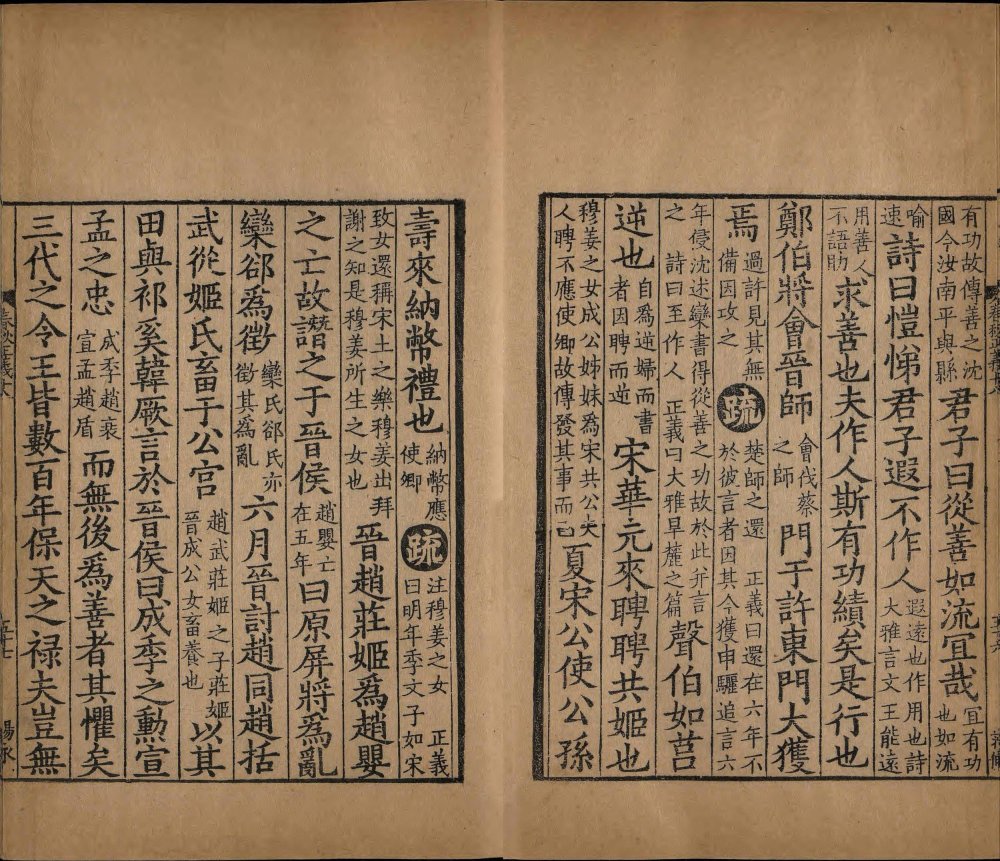 有功故傳善之沈國今汝南平輿縣君子曰從善如流宜哉宜有功也如流
喻速詩曰愷悌君子遐不作人遐遠也作用也詩大雅言文王能遠
用善人不語助求善也夫作人斯有功績矣是行也
鄭伯將會晉師會伐蔡之師門于許東門大獲
焉過許見其無備因攻之疏楚師之還 正義曰還在六年不於彼言者因其今獲申驪追言六
年侵沈述欒書得從善之功故於此并言之 詩曰至作人 正義曰大雅旱麓之篇聲伯如莒
逆也自爲逆婦而書者因聘而逆宋華元來聘聘共姬也
穆姜之女成公姊妹爲宋共公夫人聘不應使卿故傳發其事而已夏宋公使公孫
壽來納幣禮也納幣應使卿疏注穆姜之女 正義曰明年季文子如宋
致女還稱宋土之樂穆姜出拜謝之知是穆姜所生之女也晉趙莊姬爲趙嬰
之亡故譖之于晉侯趙嬰亡在五年曰原屏將爲亂
欒郤爲徵欒氏郤氏亦徵其爲亂六月晉討趙同趙括
武從姬氏畜于公宮趙武莊姬之子莊姬晉成公女畜養也以其
田與祁奚韓厥言於晉侯曰成季之勳宣
孟之忠成季趙衰宣孟趙盾而無後爲善者其懼矣
三代之令王皆數百年保天之祿夫豈無